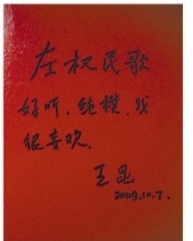 左权民歌
好听、纯樸、我
很喜欢.
王昆
2009.10.7.